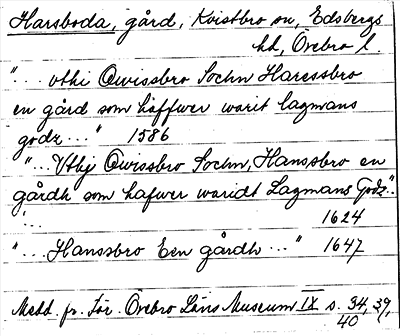 Harsboda, gård, Kvistbro sn, Edsbergs
hd, Örebro l.
"... vthi Qwissbro Sochn Haressbro
en gård som håffwer warit lagmans
godz ..." 1586
"... Vthj Qwissbro Sochn, Hanssbro en
gårdh som hafwer waridt Lagmans Godz"..
"... 1624
"... Hanssbro Een gårdh ..." 1647
Medd. fr. För. Örebro Läns Museum IX s. 34, 39,
40